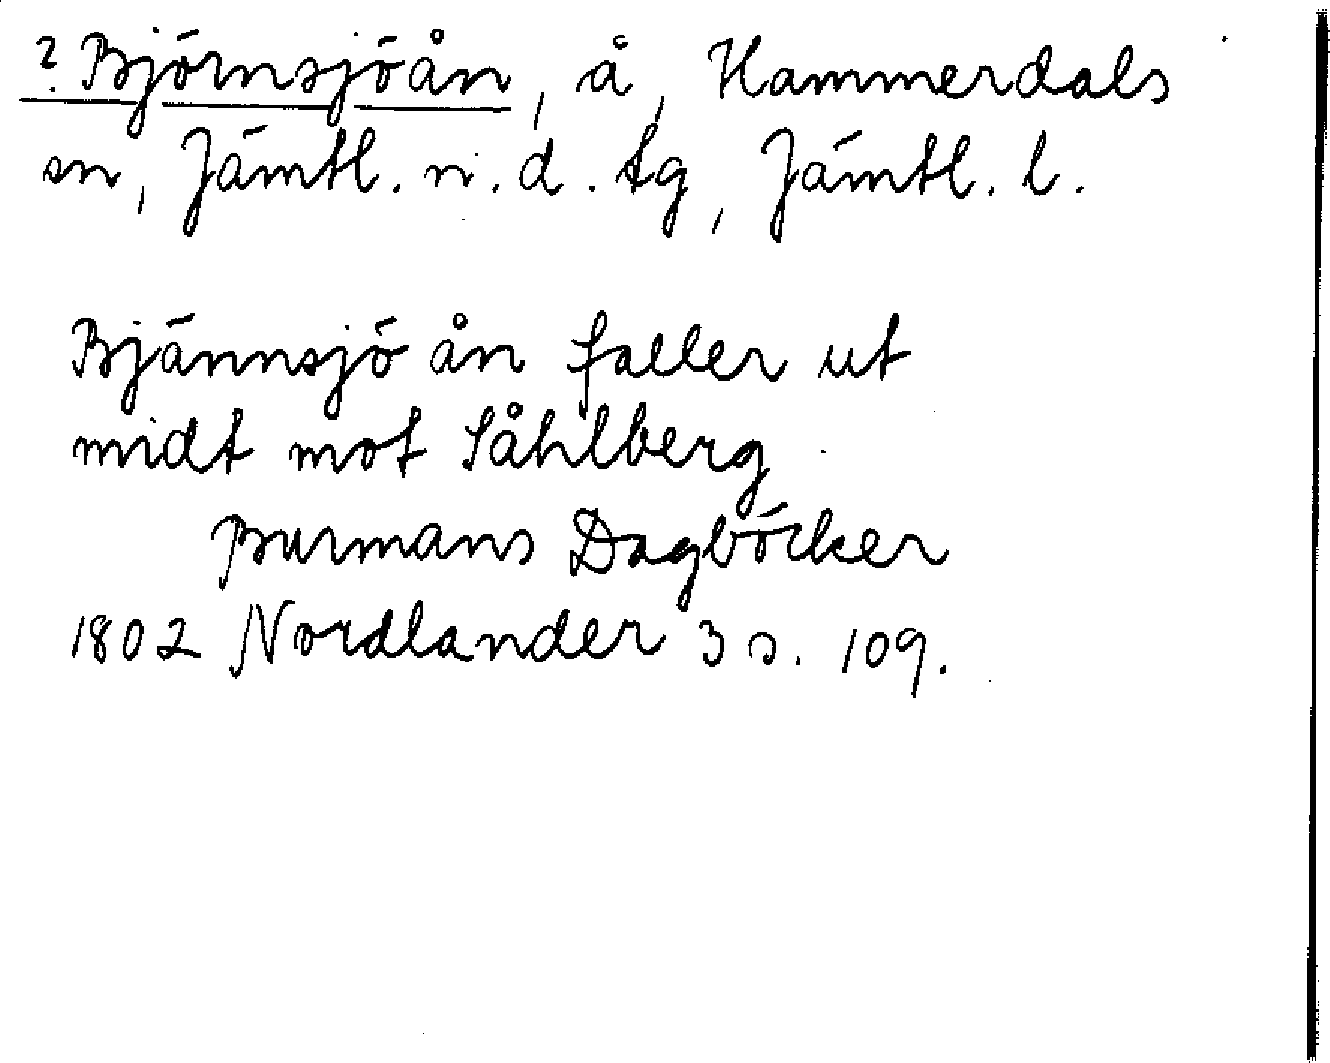 ? Björnsjöån, å, Hammerdals
sn, Jämtl. n. d. tg, Jämtl. l.
Bjännsjö ån faller ut
midt mot Såhlberg
Burmans Dagböcker
1802 Nordlander 3 s. 109.